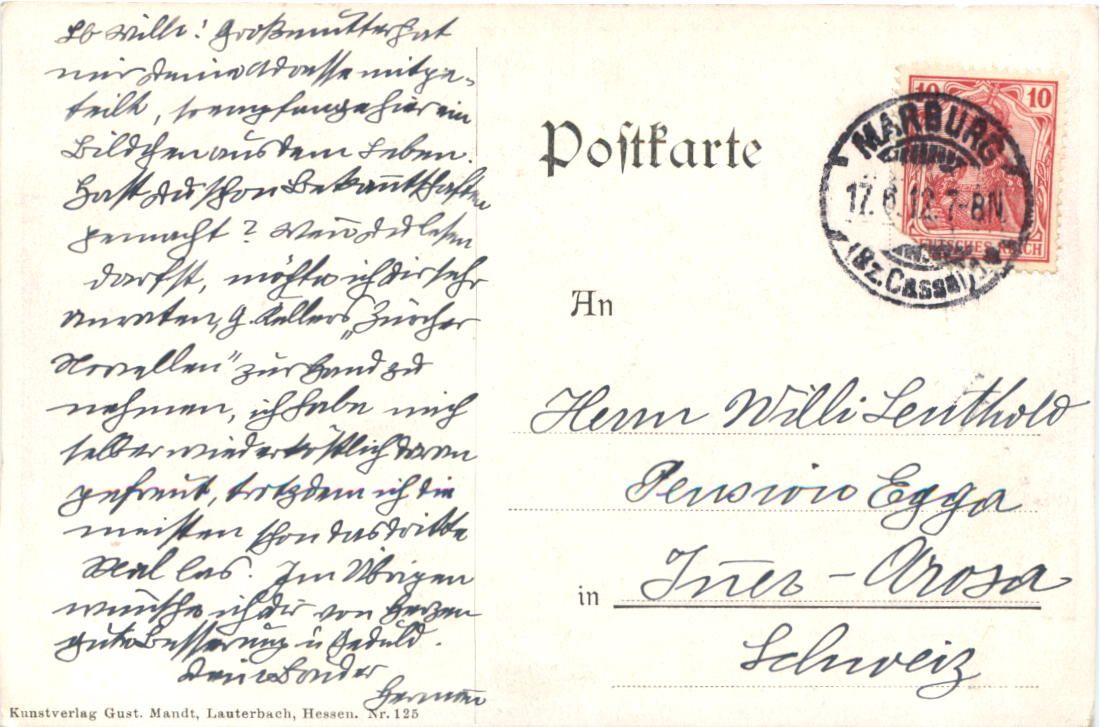 Lb Willi! Großmutter hat
mir Deine Adresse mitge-
teilt, so empfange hier ein
Bildchen aus dem Leben.
Hast Du schon Bekanntschaften
gemacht? Wenn Du lesen
darfst, möchte ich dir sehr
anraten, G. Kellers „Zürcher
Novellen" zur Hand zu
nehmen, ich habe mich
selber wieder köstlich daran
gefreut, trotzdem ich die
meisten schon das dritte
Mal las. Im Übrigen
wünsche ich dir von Herzen
gute Besserung u Geduld.
Dein Bruder
Hermann
Kunstverlag Gust. Mandt, Lauterbach, Hessen. Nr. 125
Postkarte
10 10
DEUTSCHES REICH
MARBURG
17.6.12.7-8N.
(Bz. Cassel)
An
Herrn Willi Leuthold
Pension Egga
in Inner-Arosa
Schweiz